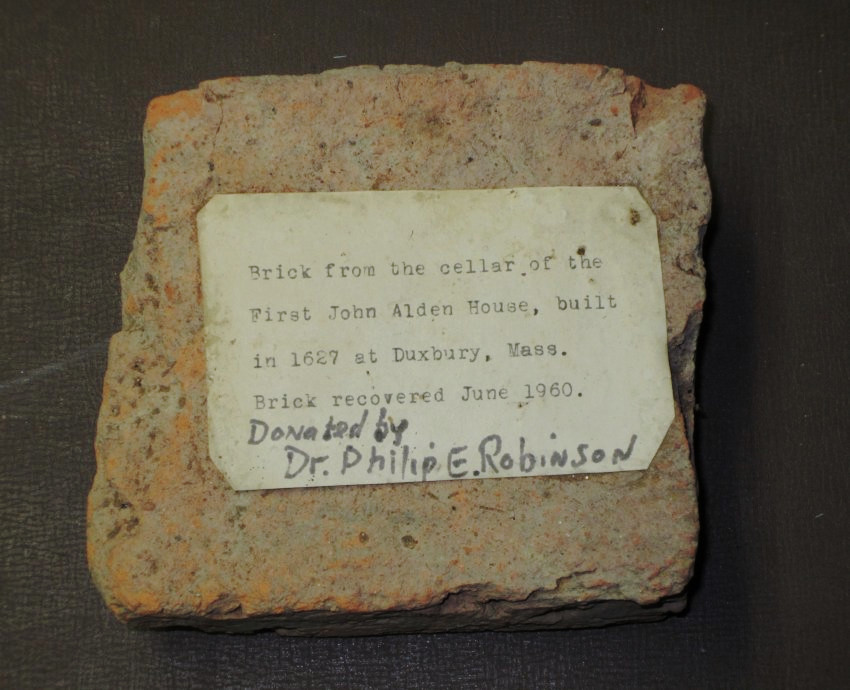 Brick from the cellar of the
First John Alden House, built
in 1627 at Duxbury, Mass.
Brick recovered June 1960.
Donated by
Dr. Philip E. Robinson